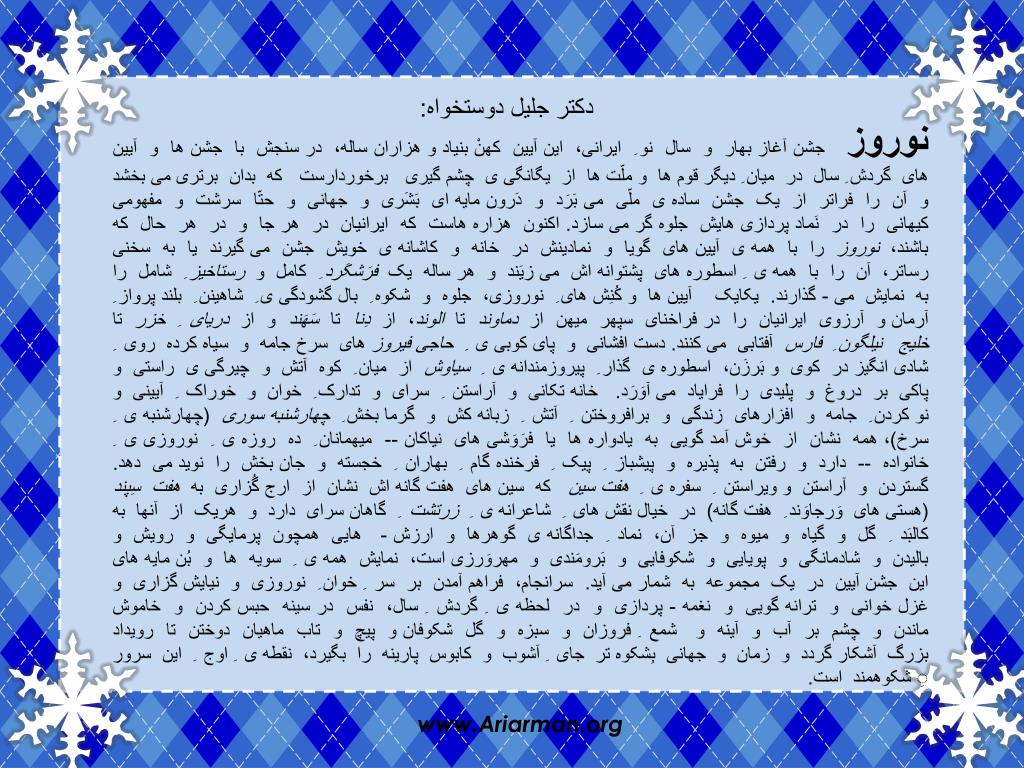 دکتر جلیل دوستخواه:
نوروز جشن آغاز بهار و سال نو ِ ایرانی، این آیین کهنْ بنیاد و هزاران ساله، در سنجش با جشن ها و آیین
های گردش ِ سال در میان ِ دیگر قوم ها و ملّت ها از یگانگی ی چشم گیری برخوردارست که بدان برتری می بخشد
و آن را فراتر از یک جشن ساده ی ملّی می بَرَد و دَرون مایه ای بَشَری و جهانی و حتّا سرشت و مفهومی
کیهانی را در نَماد پردازی هایش جلوه گر می سازد. اکنون هزاره هاست که ایرانیان در هر جا و در هر حال که
باشند، نوروز را با همه ی آیین های گویا و نمادینش در خانه و کاشانه ی خویش جشن می گیرند یا به سخنی
رساتر، آن را با همه ی ِ اسطوره های پشتوانه اش می زیَند و هر ساله یک فرَشگرد ِ کامل و رستاخیز ِ شامل را
به نمایش می - گذارند. یکایک آیین ها و کُنِش های ِ نوروزی، جلوه و شکوه ِ بال گشودگی ی ِ شاهین ِ بلند پرواز ِ
آرمان و آرزوی ایرانیان را در فراخنای سپهر میهن از دماوند تا الوند، از دِنا تا سَهَند و از دریای ِ خزر تا
خلیج نیلگون ِ فارس آفتابی می کنند. دست افشانی و پای کوبی ی ِ حاجی فیروز های سرخ جامه و سیاه کرده روی ِ
شادی انگیز در کوی و بَرزن، اسطوره ی گذار ِ پیروزمندانه ی ِ سیاوش از میان ِ کوه آتش و چیرگی ی راستی و
پاکی بر دروغ و پلیدی را فرایاد می آوَرَد. خانه تکانی و آراستن ِ سرای و تدارک ِ خوان و خوراک ِ آیینی و
نو کردن ِ جامه و افزارهای زندگی و برافروختن ِ آتش ِ زبانه کش و گرما بخش ِ چهارشنبه سوری (چهارشنبه ی ِ
سرخ)، همه نشان از خوش آمد گویی به یادواره ها یا فرَوَشی های نیاکان -- میهمانان ِ ده روزه ی ِ نوروزی ی ِ
خانواده -- دارد و رفتن به پذیره و پیشباز ِ پیک ِ فرخنده گام ِ بهاران ِ خجسته و جان بخش را نوید می دهد.
گستردن و آراستن و ویراستن ِ سفره ی ِ هفت سین که سین های هفت گانه اش نشان از ارج گُزاری به هفت سِپند
(هستی های وَرجاوَند ِ هفت گانه) در خیال نقش های ِ شاعرانه ی ِ زرتشت ِ گاهان سرای دارد و هریک از آنها به
کالبَد ِ گل و گیاه و میوه و جز آن، نماد ِ جداگانه ی گوهرها و ارزش - هایی همچون پرمایگی و رویش و
بالیدن و شادمانگی و پویایی و شکوفایی و بَرومَندی و مهروَرزی است، نمایش همه ی ِ سویه ها و بُن مایه های
این جشن آیین در یک مجموعه به شمار می آید. سرانجام، فراهم آمدن بر سر ِ خوان ِ نوروزی و نیایش گزاری و
غزل خوانی و ترانه گویی و نغمه - پردازی و در لحظه ی ِ گردش ِ سال، نفس در سینه حبس کردن و خاموش
ماندن و چشم بر آب و آینه و شمع ِ فروزان و سبزه و گل شکوفان و پیچ و تاب ماهیان دوختن تا رویداد
بزرگ آشکار گردد و زمان و جهانی بِشکوه تر جای ِ آشوب و کابوس پارینه را بگیرد، نقطه ی ِ اوج ِ این سرور
ِ شکوهمند است.
www.Ariarman.org